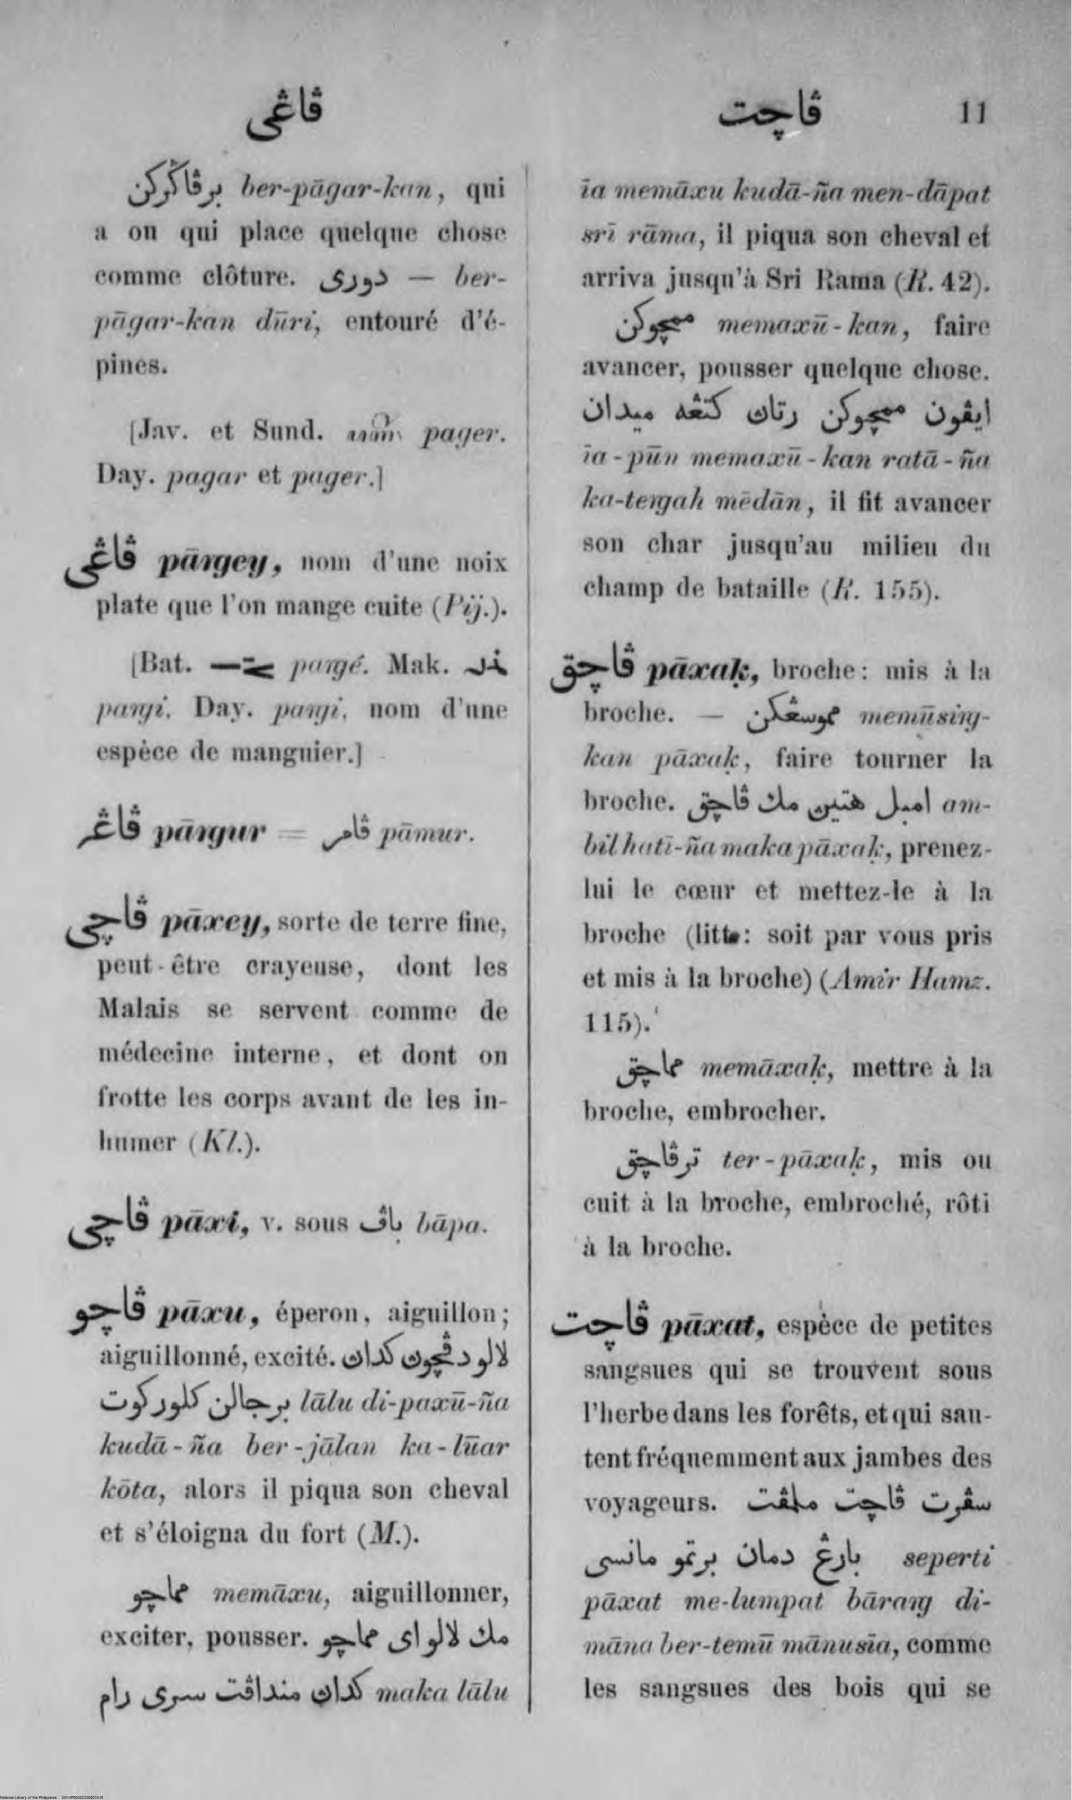 ڤاڠي
ڤاچت 11
برڤاڬركن ber-pāgar-kan, qui
a ou qui place quelque chose
comme clôture. دوري — ber-
pāgar-kan dūri, entouré d'é-
pines.
[Jav. et Sund. pager.
Day. pagar et pager.]
ڤاڠي pāŋgey, nom d'une noix
plate que l'on mange cuite (Pij.).
[Bat. paŋgé. Mak.
paŋgi. Day. paŋgi, nom d'une
espèce de manguier.]
ڤاڠر pāŋgur = ڤامر pāmur.
ڤاچي pāxey, sorte de terre fine,
peut-être crayeuse, dont les
Malais se servent comme de
médecine interne, et dont on
frotte les corps avant de les in-
humer (Kl.).
ڤاچي pāxi, v. sous باڤ bāpa.
ڤاچو pāxu, éperon, aiguillon;
aiguillonné, excité. لالو دڤچون كدان
برجالن كلور كوت lālu di-paxū-ña
kudā-ña ber-jālan ka-lūar
kōta, alors il piqua son cheval
et s'éloigna du fort (M.).
مماچو memāxu, aiguillonner,
exciter, pousser. مك لالو اي مماچو
كدان منداڤت سري رام maka lālu
īa memāxu kudā-ña men-dāpat
srī rāma, il piqua son cheval et
arriva jusqu'à Sri Rama (R. 42).
ممچوكن memaxū-kan, faire
avancer, pousser quelque chose.
ايڤون ممچوكن رتان كتڠه ميدان
īa-pūn memaxū-kan ratā-ña
ka-teŋgah mēdān, il fit avancer
son char jusqu'au milieu du
champ de bataille (R. 155).
ڤاچق pāxaḳ, broche: mis à la
broche. — مموسڠكن memūsiŋ-
kan pāxaḳ, faire tourner la
broche. امبل هتين مك ڤاچق am-
bil hatī-ña maka pāxaḳ, prenez-
lui le cœur et mettez-le à la
broche (litt.: soit par vous pris
et mis à la broche) (Amir Hamz.
115).
مماچق memāxaḳ, mettre à la
broche, embrocher.
ترڤاچق ter-pāxaḳ, mis ou
cuit à la broche, embroché, rôti
à la broche.
ڤاچت pāxat, espèce de petites
sangsues qui se trouvent sous
l'herbe dans les forêts, et qui sau-
tent fréquemment aux jambes des
voyageurs. سڤرت ڤاچت ملمڤت
بارڠ دمان برتمو مانسي seperti
pāxat me-lumpat bāraŋ di-
māna ber-temū mānusīa, comme
les sangsues des bois qui se